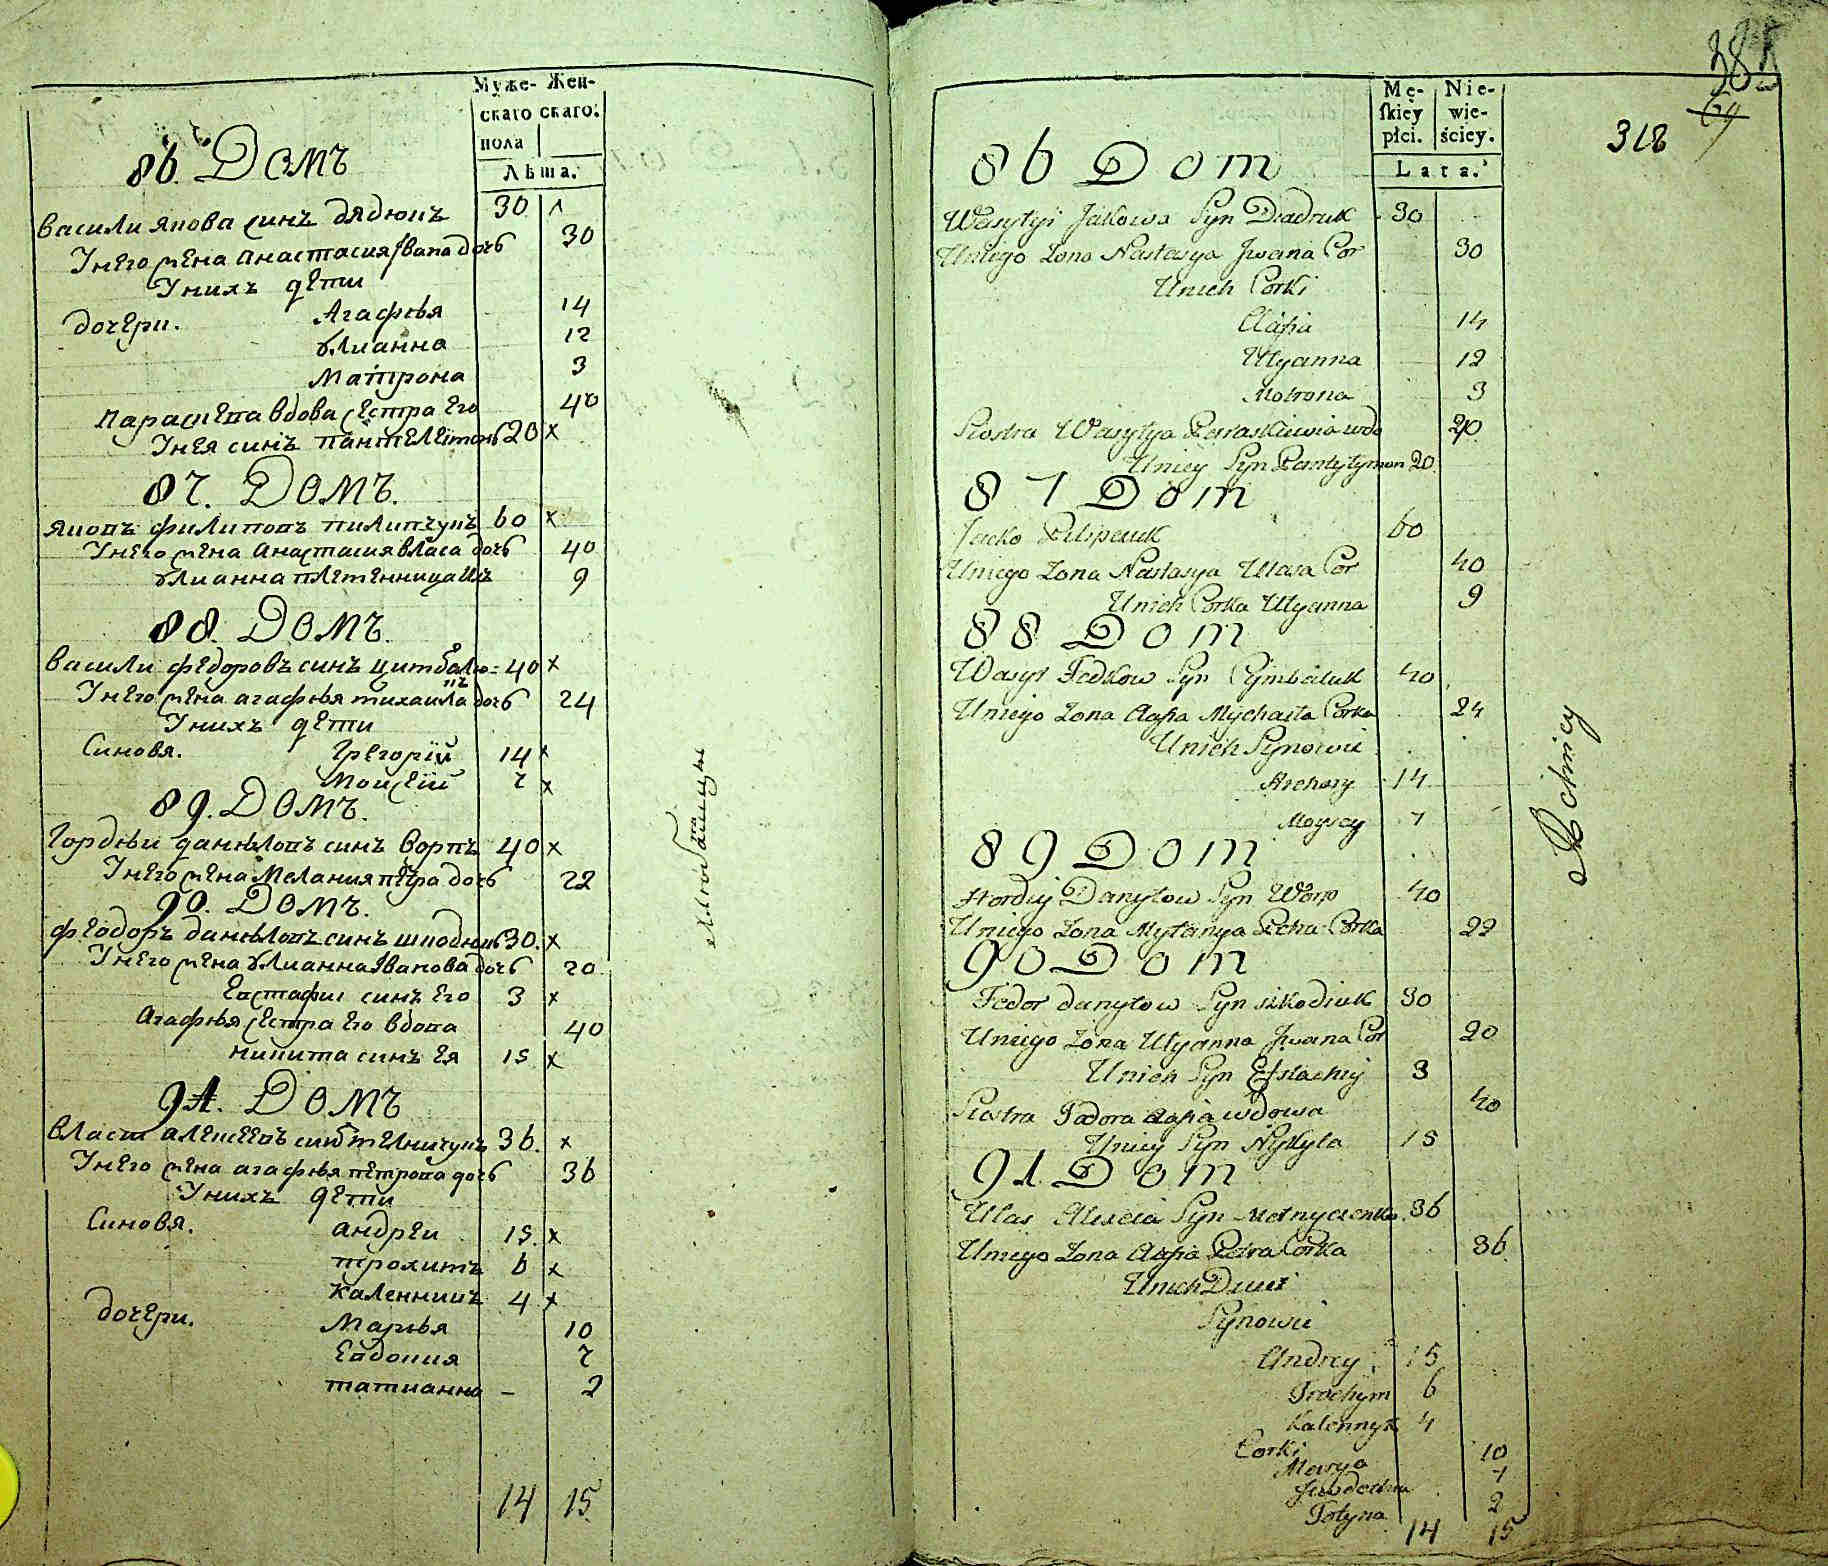 Муже- Жен-
скаго скаго.
пола
Лѣта.
86. Домъ
Васили якова синъ дядюкъ 30
Унего жена анастасия Iвана дочь 30
Унихъ дети
дочери. Агафья 14
улианна 12
Матрона 3
параскева вдова сестра его 40
Унея синъ пантелеимонъ 20 x
87. Домъ.
яковъ филиповъ пилипчукъ 60 x
Унего жена анастасия власа дочь 40
улианна племенница 9
88. Домъ.
Васили федоровъ синъ цимбалю= 40 x
къ
Унего жена агафья михаила дочь 24
Унихъ дети
Синовя. Грегорiй 14 x
Моисeiй 7 x
89. Домъ.
Гордѣи данѣловъ синъ ворпъ 40 x
Унего жена Мелания петра дочь 22
90. Домъ.
феодоръ данѣловъ синъ шкодюкъ 30. x
Унего жена улианна Iванова дочь 20
Евстафiи синъ его 3 x
Агафья сестра его вдова 40
никита синъ ея 15 x
91. Домъ
власи алексеевъ синъ мелничукъ 36. x
Унего жена агафья петрова дочь 36
Унихъ дети
Синовя. андреи 15. x
трохимъ 6 x
Каленникъ 4 x
дочери. Марья 10
Евдокия 7
татианна - 2
14 15
385
69
318
Mę- Nie-
skiey wie-
płci. ściey.
Lata.
86 Dom
Wasylyi Jakowa Syn Diadiuk 30
Uniego Zona Nastasya Jwana Cor 30
Unich Corki
Aafia 14
Ulyanna 12
Motrona 3
Siostra Wasylya Paraskiewia wdo 20
Uniey Syn Pantylymon 20.
87 Dom
Jacko Pilipczuk 60
Uniego Zona Nastasya Ulasa Cor 40
Unich Corka Ulyanna 9
88 Dom
Wasyl Fedkow Syn Cymbaluk 40
Uniego Zona Aafia Mychayła Corka 24
Unich Synowie
Hrehory 14
Moysey 7
89 Dom
Hordiy Danyłow Syn Worp 40
Uniego Zona Mylanya Petra Corka 22
90 Dom
Fedor danyłow Syn szkodiuk 30
Uniego Zona Ulyanna Jwana Cor 20
Unich Syn Efstachiy 3
Siostra Fedora Aafia wdowa 40
Uniey Syn Nykyta 15
91 Dom
Ulas Alexeia Syn Melnyczenko 36
Uniego Zona Aafia Petra Corka 36
Unich Dzieci
Synowie
Andrey 15
Trochym 6
Kalennyk 4
Corki
Marya 10
Jewdochia 7
Tatyna 2
14 15